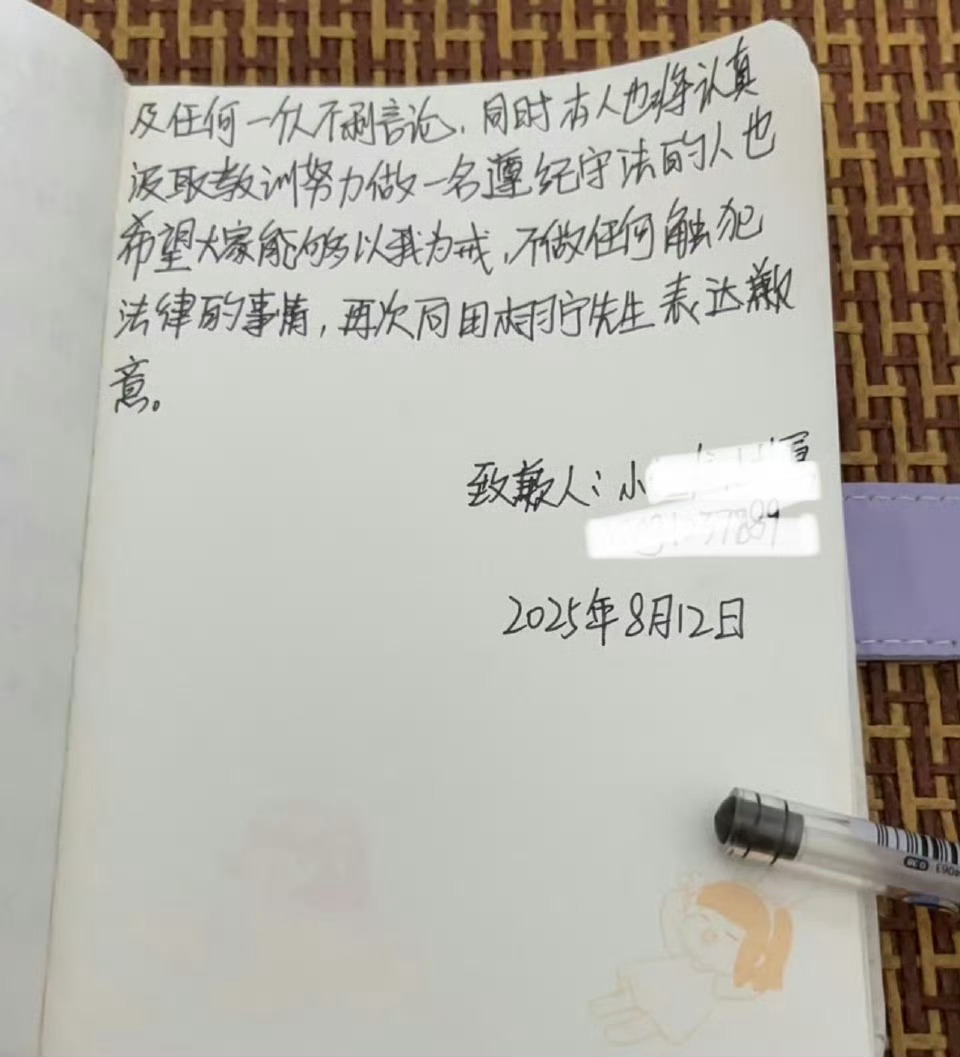 及任何一从不利言论，同时本人也将认真
汲取教训努力做一名遵纪守法的人也
希望大家能够以我为戒，不做任何触犯
法律的事情，再次向田栩宁先生表达歉
意。
致歉人：小
37889
2025年8月12日
4063 0.38